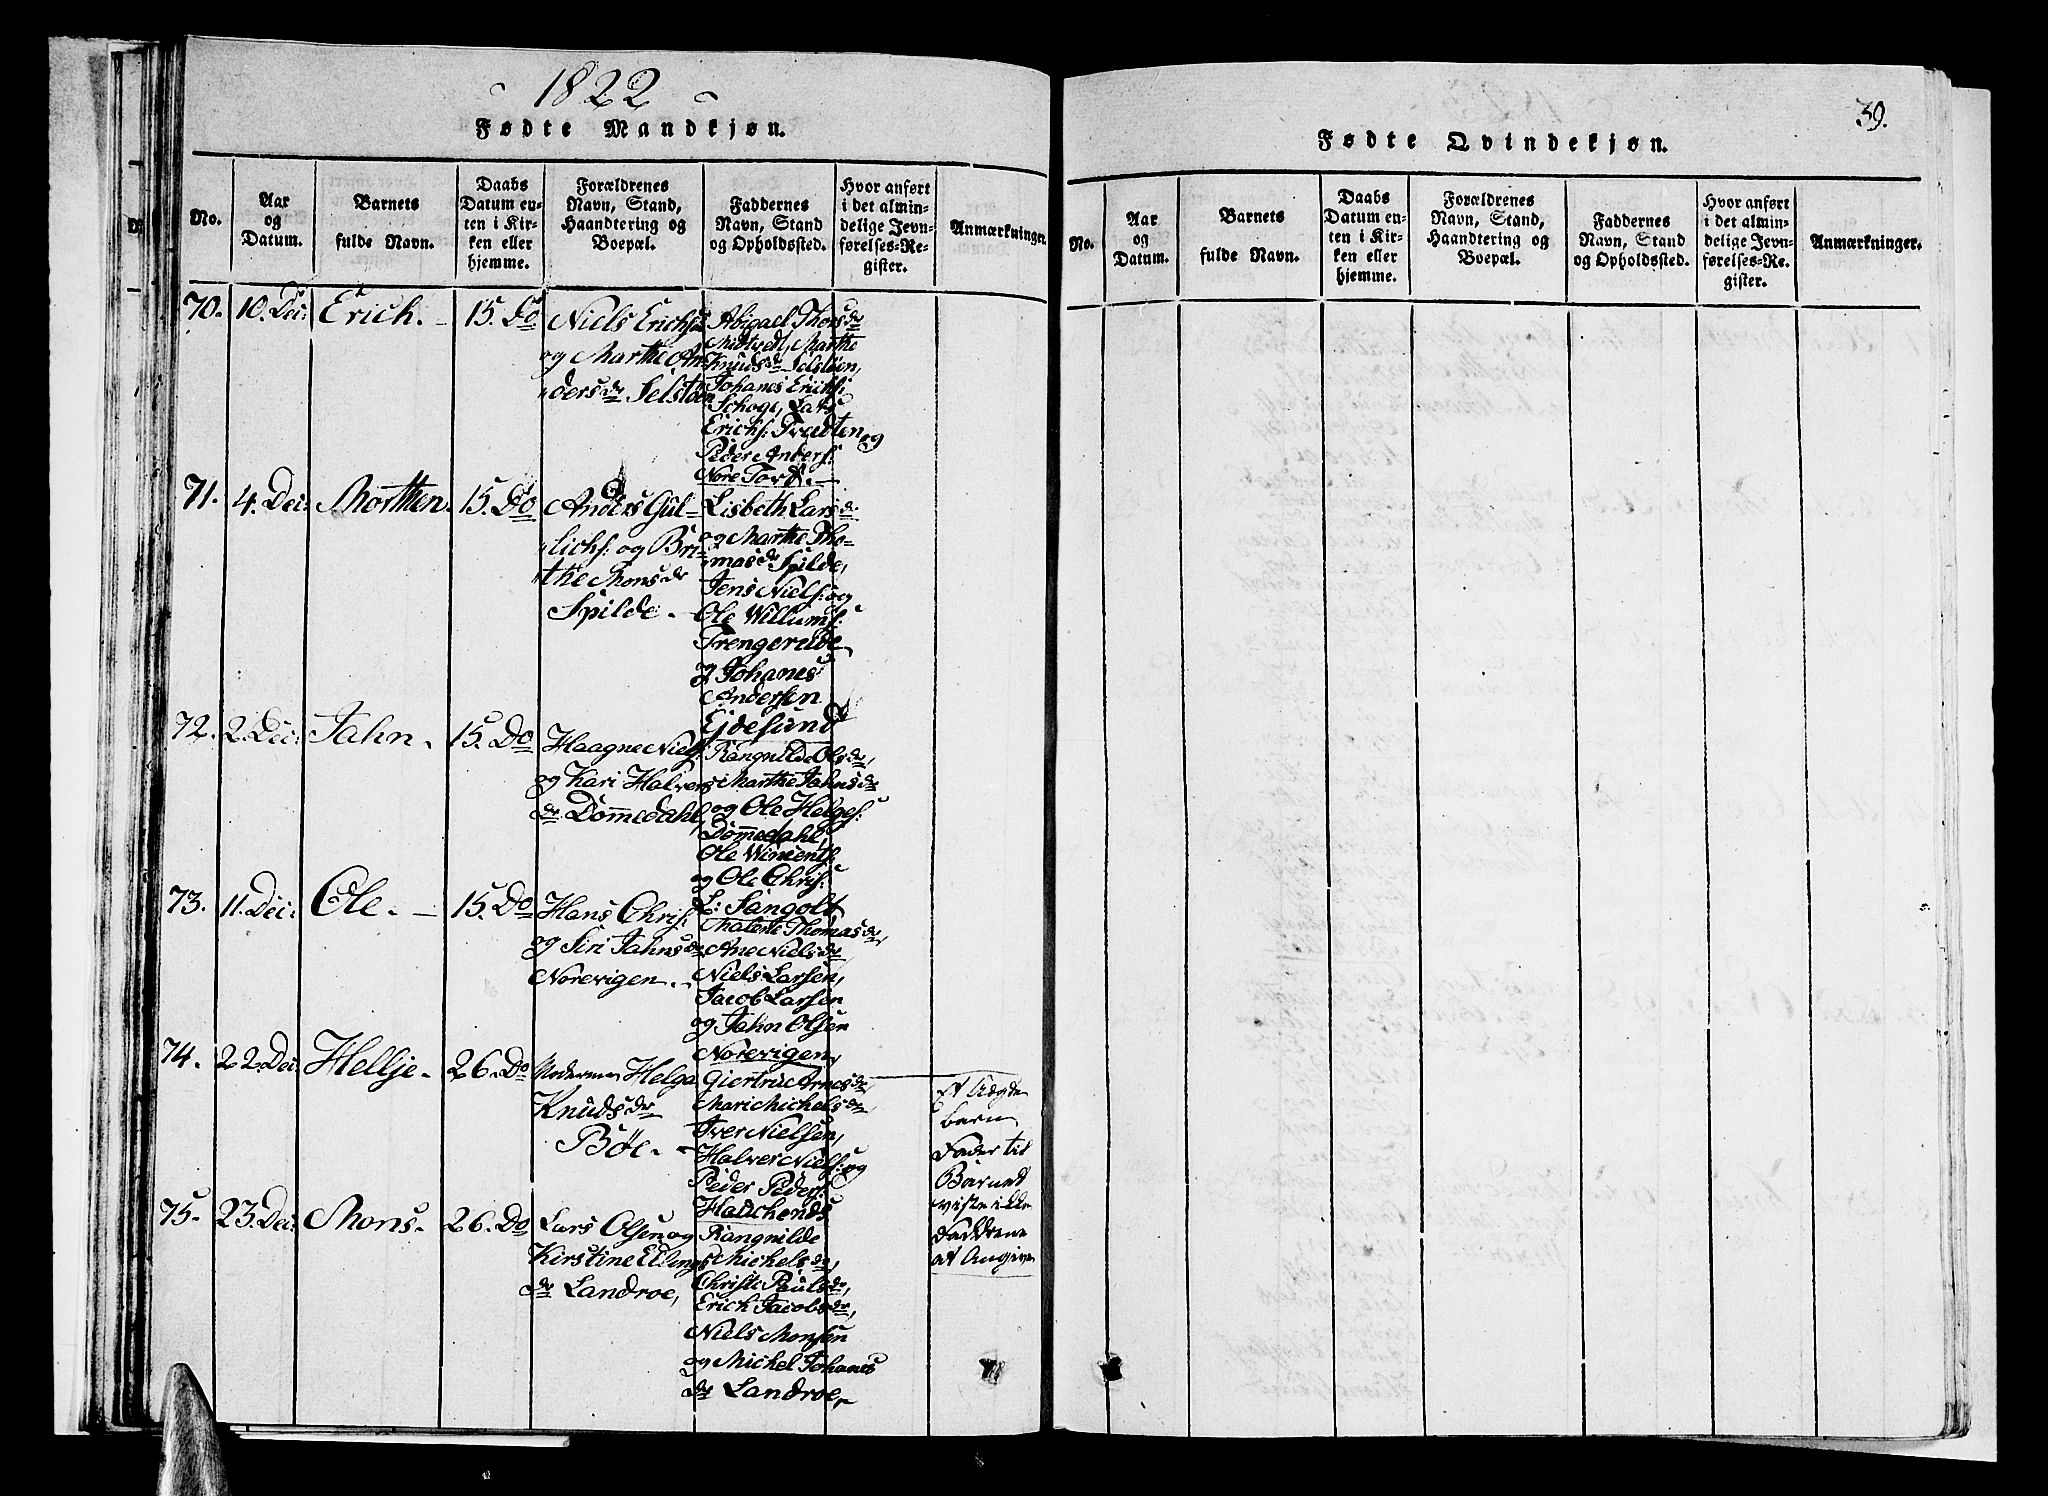 1822
Fødte Mandkjøn.
No.
Aar
og
Datum.
Barnets
fulde Navn.
Daabs
Datum en-
ten i Kir-
ken eller
hjemme.
Forældrenes
Navn, Stand,
Haandtering og
Boepæl.
Faddernes
Navn, Stand
og Opholdssted.
Hvor anført
i det almin-
delige Jevn-
førelses-Re-
gister.
Anmærkninger.
70. 10. Dec: Erich. 15. Do
Niels Erichs:
og Marthe An-
dersdr Selstøen
Abigael Thorsdr
Midtvedt, Marthe
Knudsdr Selstøen,
Johanes Erichs:
Schoge, Lars
Erichs: Tvedten og
Peder Anders:
Nore Tord.
71. 4. Dec: Morthen. 15. Do
Anders Gul-
lichs: og Bri-
the Monsdr
Spilde.
Lisbeth Larsdr
og Marthe Tho-
masdr Spilde,
Jens Niels: og
Ole Willums:
Trengerude
og Johanes
Andersen
Ejdesund
72. 2. Dec: Jahn. 15. Do
Haagne Niels:
og Kari Halvers
dr Dommedahl,
Rangnilde Olsdr,
Marthe Jahnsdr
og Ole Helges:
Dommedahl,
Ole Wincents:
og Ole Chris:
L: Sangolt
73. 11. Dec: Ole. 15. Do
Hans Chris:
og Siri Jahnsdr
Norevigen.
Malene Thomasdr,
Ane Nielsdr
Niels Larsen,
Jacob Larsen
og Jahn Olsen
Norevigen,
74. 22. Dec: Hellje. 26. Do
Moderen Helga
Knudsdr
Bøe.
Giertru Arnesdr,
Mari Michelsdr,
Iver Nielsen,
Halver Niels: og
Peder Peders:
Hauchends
et Uægte
barn
Fader til
Barnet
viste ikke
Faddrene
at Angive
75. 23. Dec: Mons. 26. Do
Lars Olsen og
Kirstine Ellings
dr Landroe,
Rangnilde
Michelsdr,
Christi Paulsdr,
Erich Jacobsdr,
Niels Monsen
og Michel Johanes
dr Landroe,
39.
Fødte Qvindekjøn.
No.
Aar
og
Datum.
Barnets
fulde Navn.
Daabs
Datum en-
ten i Kir-
ken eller
hjemme.
Forældrenes
Navn, Stand,
Haandtering og
Boepæl.
Faddernes
Navn, Stand
og Opholdssted.
Hvor anført
i det almin-
delige Jevn-
førelses-Re-
gister.
Anmærkninger.